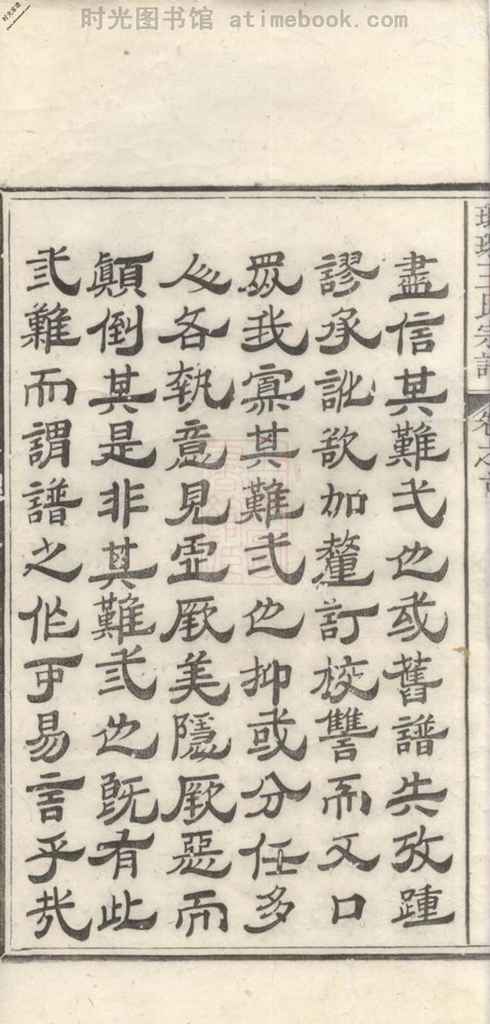 时光图书馆 atimebook.com
盡信其難弌也或舊譜失攷踵
謬承訛欲加釐訂校讐而文口
眾我寡其難弍也抑或分任多
人各執意見歪厥美隱厥惡而
顛倒其是非其難弎也既有此
弎難而謂譜之作可易言乎哉